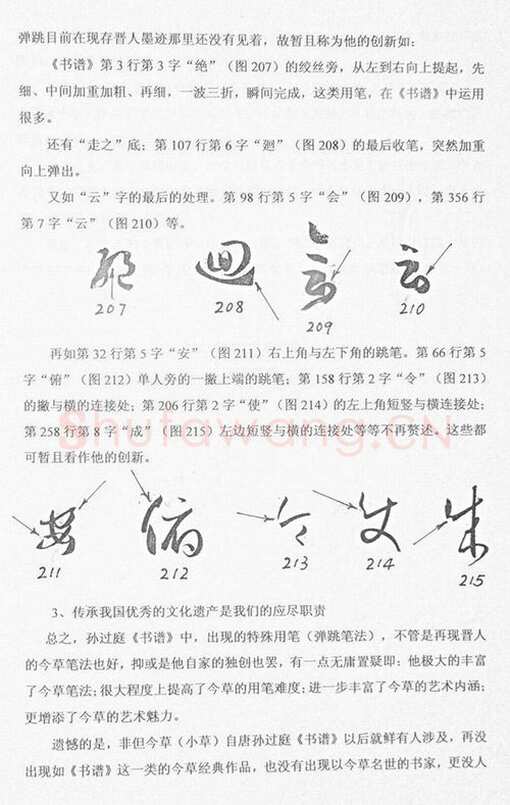 弹跳目前在现存晋人墨迹那里还没有见着，故暂且称为他的创新如：
《书谱》第 3 行第 3 字“绝”（图 207）的绞丝旁，从左到右向上提起，先
细、中间加重加粗、再细，一波三折，瞬间完成，这类用笔，在《书谱》中运用
很多。
还有“走之”底；第 107 行第 6 字“廻”（图 208）的最后收笔，突然加重
向上弹出。
又如“云”字的最后的处理。第 98 行第 5 字“会”（图 209），第 356 行
第 7 字“云”（图 210）等。
207 208 209 210
再如第 32 行第 5 字“安”（图 211）右上角与左下角的跳笔。第 66 行第 5
字“俯”（图 212）单人旁的一撇上端的跳笔；第 158 行第 2 字“令”（图 213）
的撇与横的连接处；第 206 行第 2 字“使”（图 214）的左上角短竖与横连接处；
第 258 行第 8 字“成”（图 215）左边短竖与横的连接处等等不再赘述。这些都
可暂且看作他的创新。
Shufawang.CN
211 212 213 214 215
3、传承我国优秀的文化遗产是我们的应尽职责
总之，孙过庭《书谱》中，出现的特殊用笔（弹跳笔法），不管是再现晋人
的今草笔法也好，抑或是他自家的独创也罢，有一点无庸置疑即：他极大的丰富
了今草笔法；很大程度上提高了今草的用笔难度；进一步丰富了今草的艺术内涵；
更增添了今草的艺术魅力。
遗憾的是，非但今草（小草）自唐孙过庭《书谱》以后就鲜有人涉及，再没
出现如《书谱》这一类的今草经典作品，也没有出现以今草名世的书家，更没人